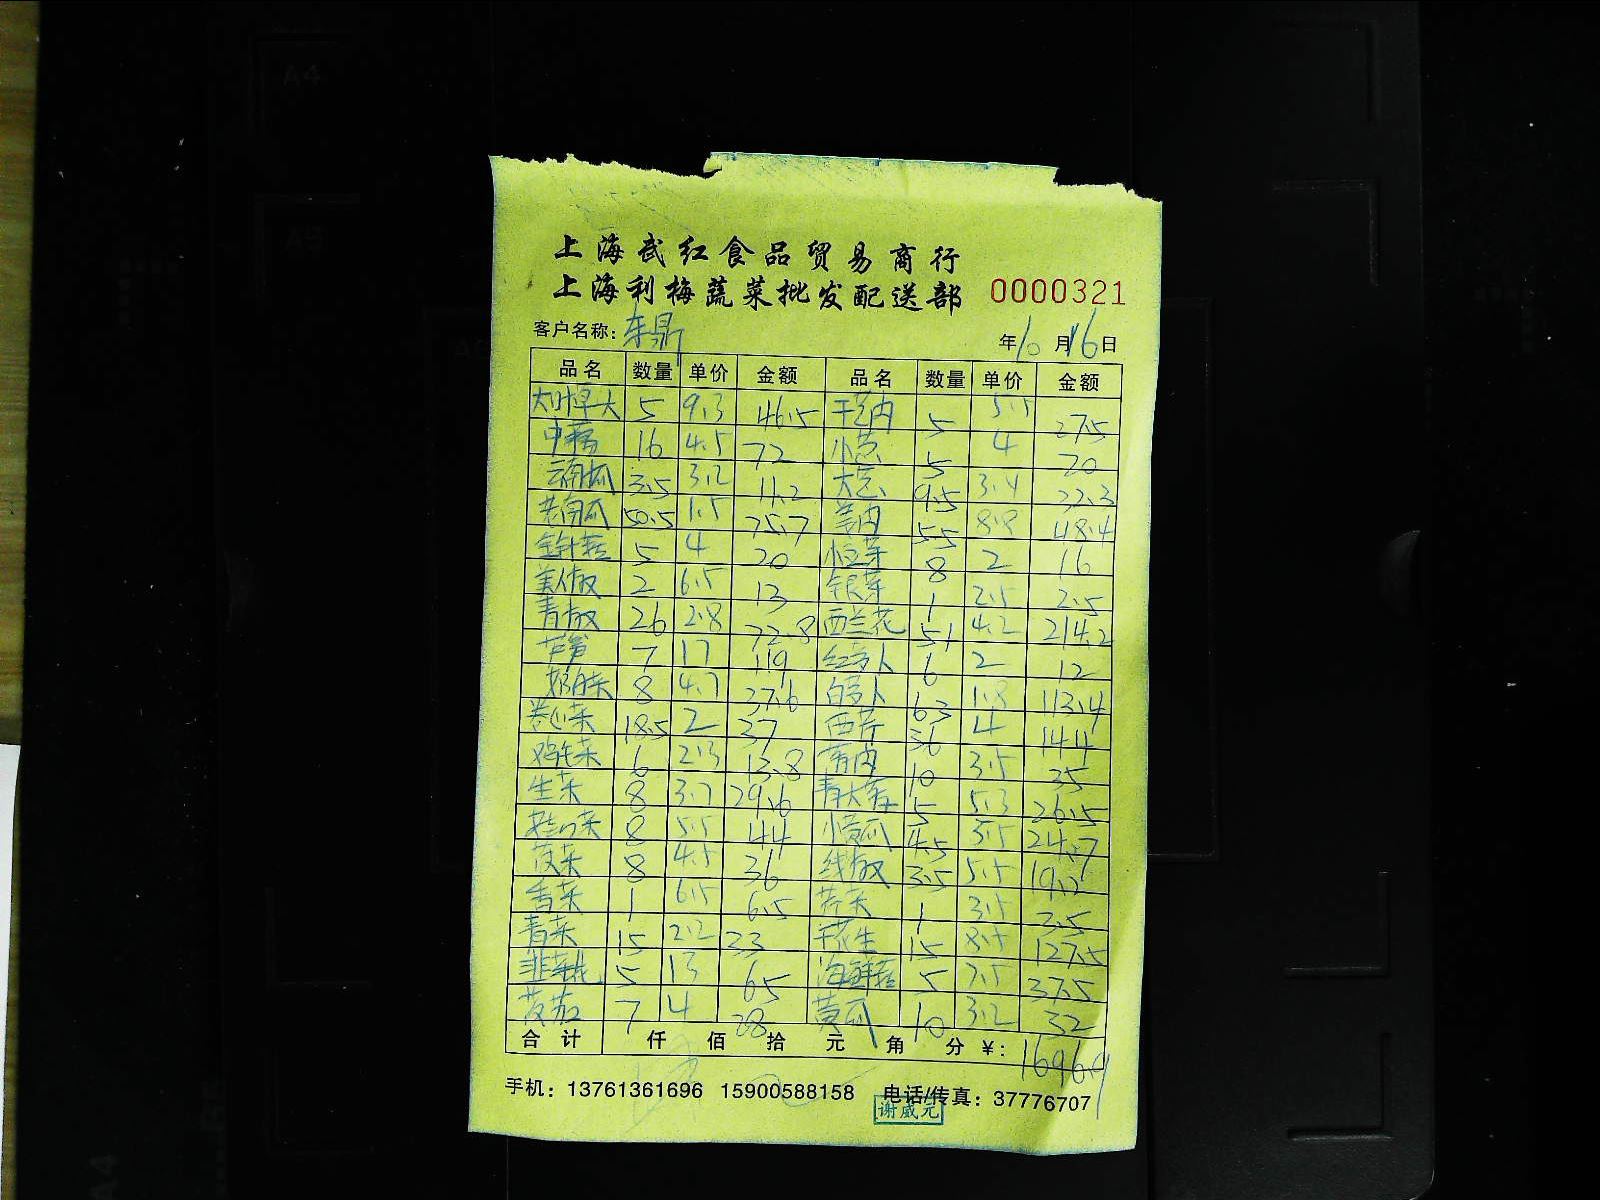 上海武红食品贸易商行
上海利梅蔬菜批发配送部 0000321
客户名称：东鼎 年10月16日
品名 数量 单价 金额 品名 数量 单价 金额
5 9.3 46.5 5 5.5 27.5
中藕 16 4.5 72 5 4 20
3.5 3.2 11.2 9.5 3.4 32.3
老南瓜 50.5 1.5 75.7 5.5 8.8 48.4
金针菇 5 4 20 小豆芽 8 2 16
美人椒 2 6.5 13 银芽 1 2.5 2.5
青椒 26 2.8 72.8 西兰花 51 4.2 214.2
芦笋 7 17 119 红萝卜 6 2 12
奶白菜 8 4.7 37.6 白萝卜 63 1.8 113.4
卷心菜 18.5 2 37 西芹 36 4 144
鸡毛菜 6 2.3 13.8 10 3.5 35
生菜 8 3.7 29.6 5 5.3 26.5
8 5.5 44 小黄瓜 4.5 5.5 24.7
菠菜 8 4.5 36 线椒 3.5 5.5 19.2
香菜 1 6.5 6.5 1 3.5 3.5
青菜 15 2.2 33 干花生 15 8.5 127.5
5 13 65 海鲜菇 5 7.5 37.5
茄 7 4 28 黄瓜 10 3.2 32
合计 仟 佰 拾 元 角 分 ¥: 1696.9
手机：13761361696 15900588158 电话/传真：37776707
谢威元